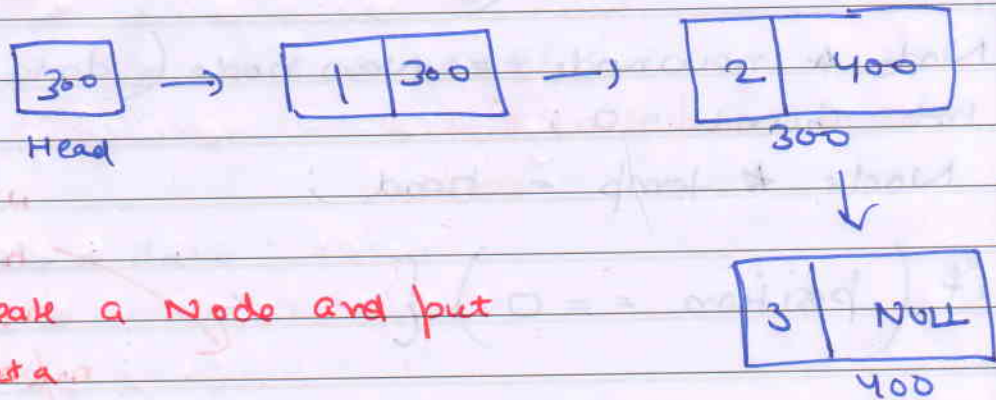 300 → 1 | 300 → 2 | 400
Head
300
3 | NULL
400
a Node and put